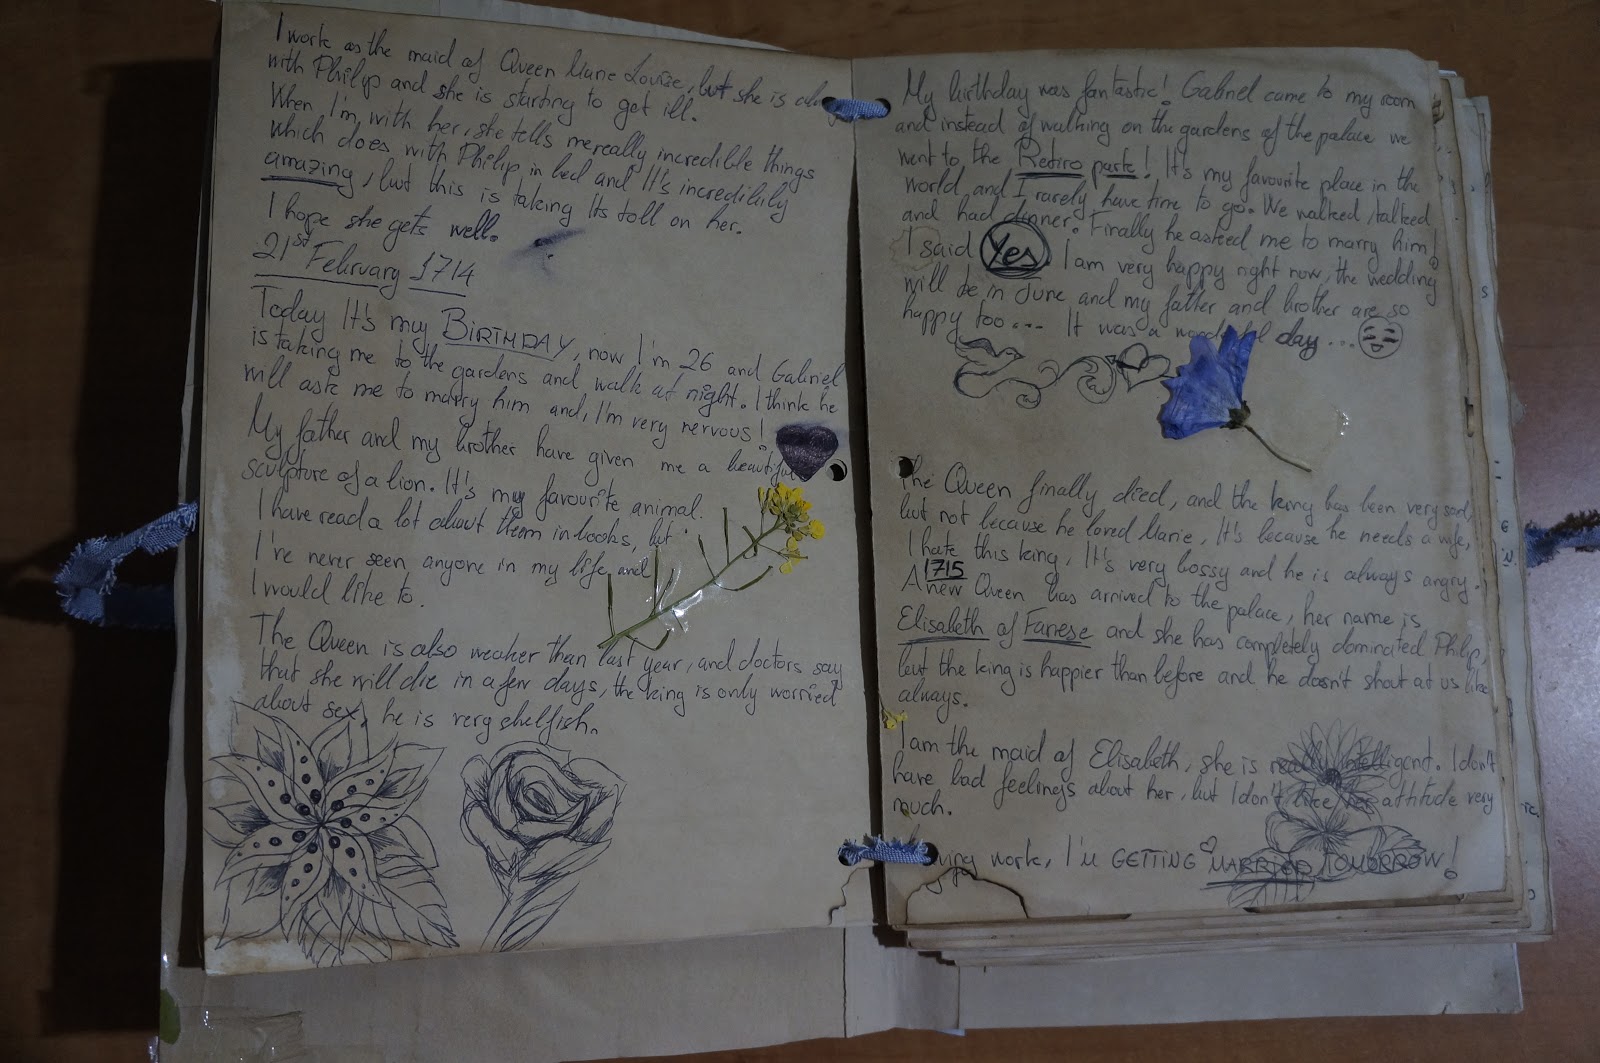 I work as the maid of Queen Marie Louise, but she is
with Philip and she is starting to get ill.
When I'm with her, she tells me really incredible things
which does with Philip in bed and It's incredibily
amazing, but this is taking Its toll on her.
I hope she gets well.
21st February 1714
Today It's my BIRTHDAY, now I'm 26 and Gabriel
is taking me to the gardens and walk at night. I think he
will ask me to marry him and, I'm very nervous!
My father and my brother have given me a beautiful
sculpture of a lion. It's my favourite animal.
I have read a lot about them in books, but
I've never seen anyone in my life and
I would like to.
The Queen is also weaker than last year, and doctors say
that she will die in a few days, the king is only worried
about sex, he is very shelfish.
My birthday was fantastic! Gabriel came to my room
and instead of walking on the gardens of the palace we
went to the Retiro park! It's my favourite place in the
world, and I rarely have time to go. We walked, talked
and had dinner. Finally he asked me to marry him!
I said Yes I am very happy right now, the wedding
will be in June and my father and brother are so
happy too.... It was a wonderful day...
The Queen finally died, and the king has been very sad,
but not because he loved Marie, It's because he needs a wife,
I hate this king, It's very bossy and he is always angry.
1715
A new Queen has arrived to the palace, her name is
Elisabeth of Fanese and she has completely dominated Philip,
but the king is happier than before and he dosn't shout at us like
always.
I am the maid of Elisabeth, she is really intelligent. I don't
have bad feelings about her, but I don't like her attitude very
much.
work, I'm GETTING MARRIED TOMORROW!